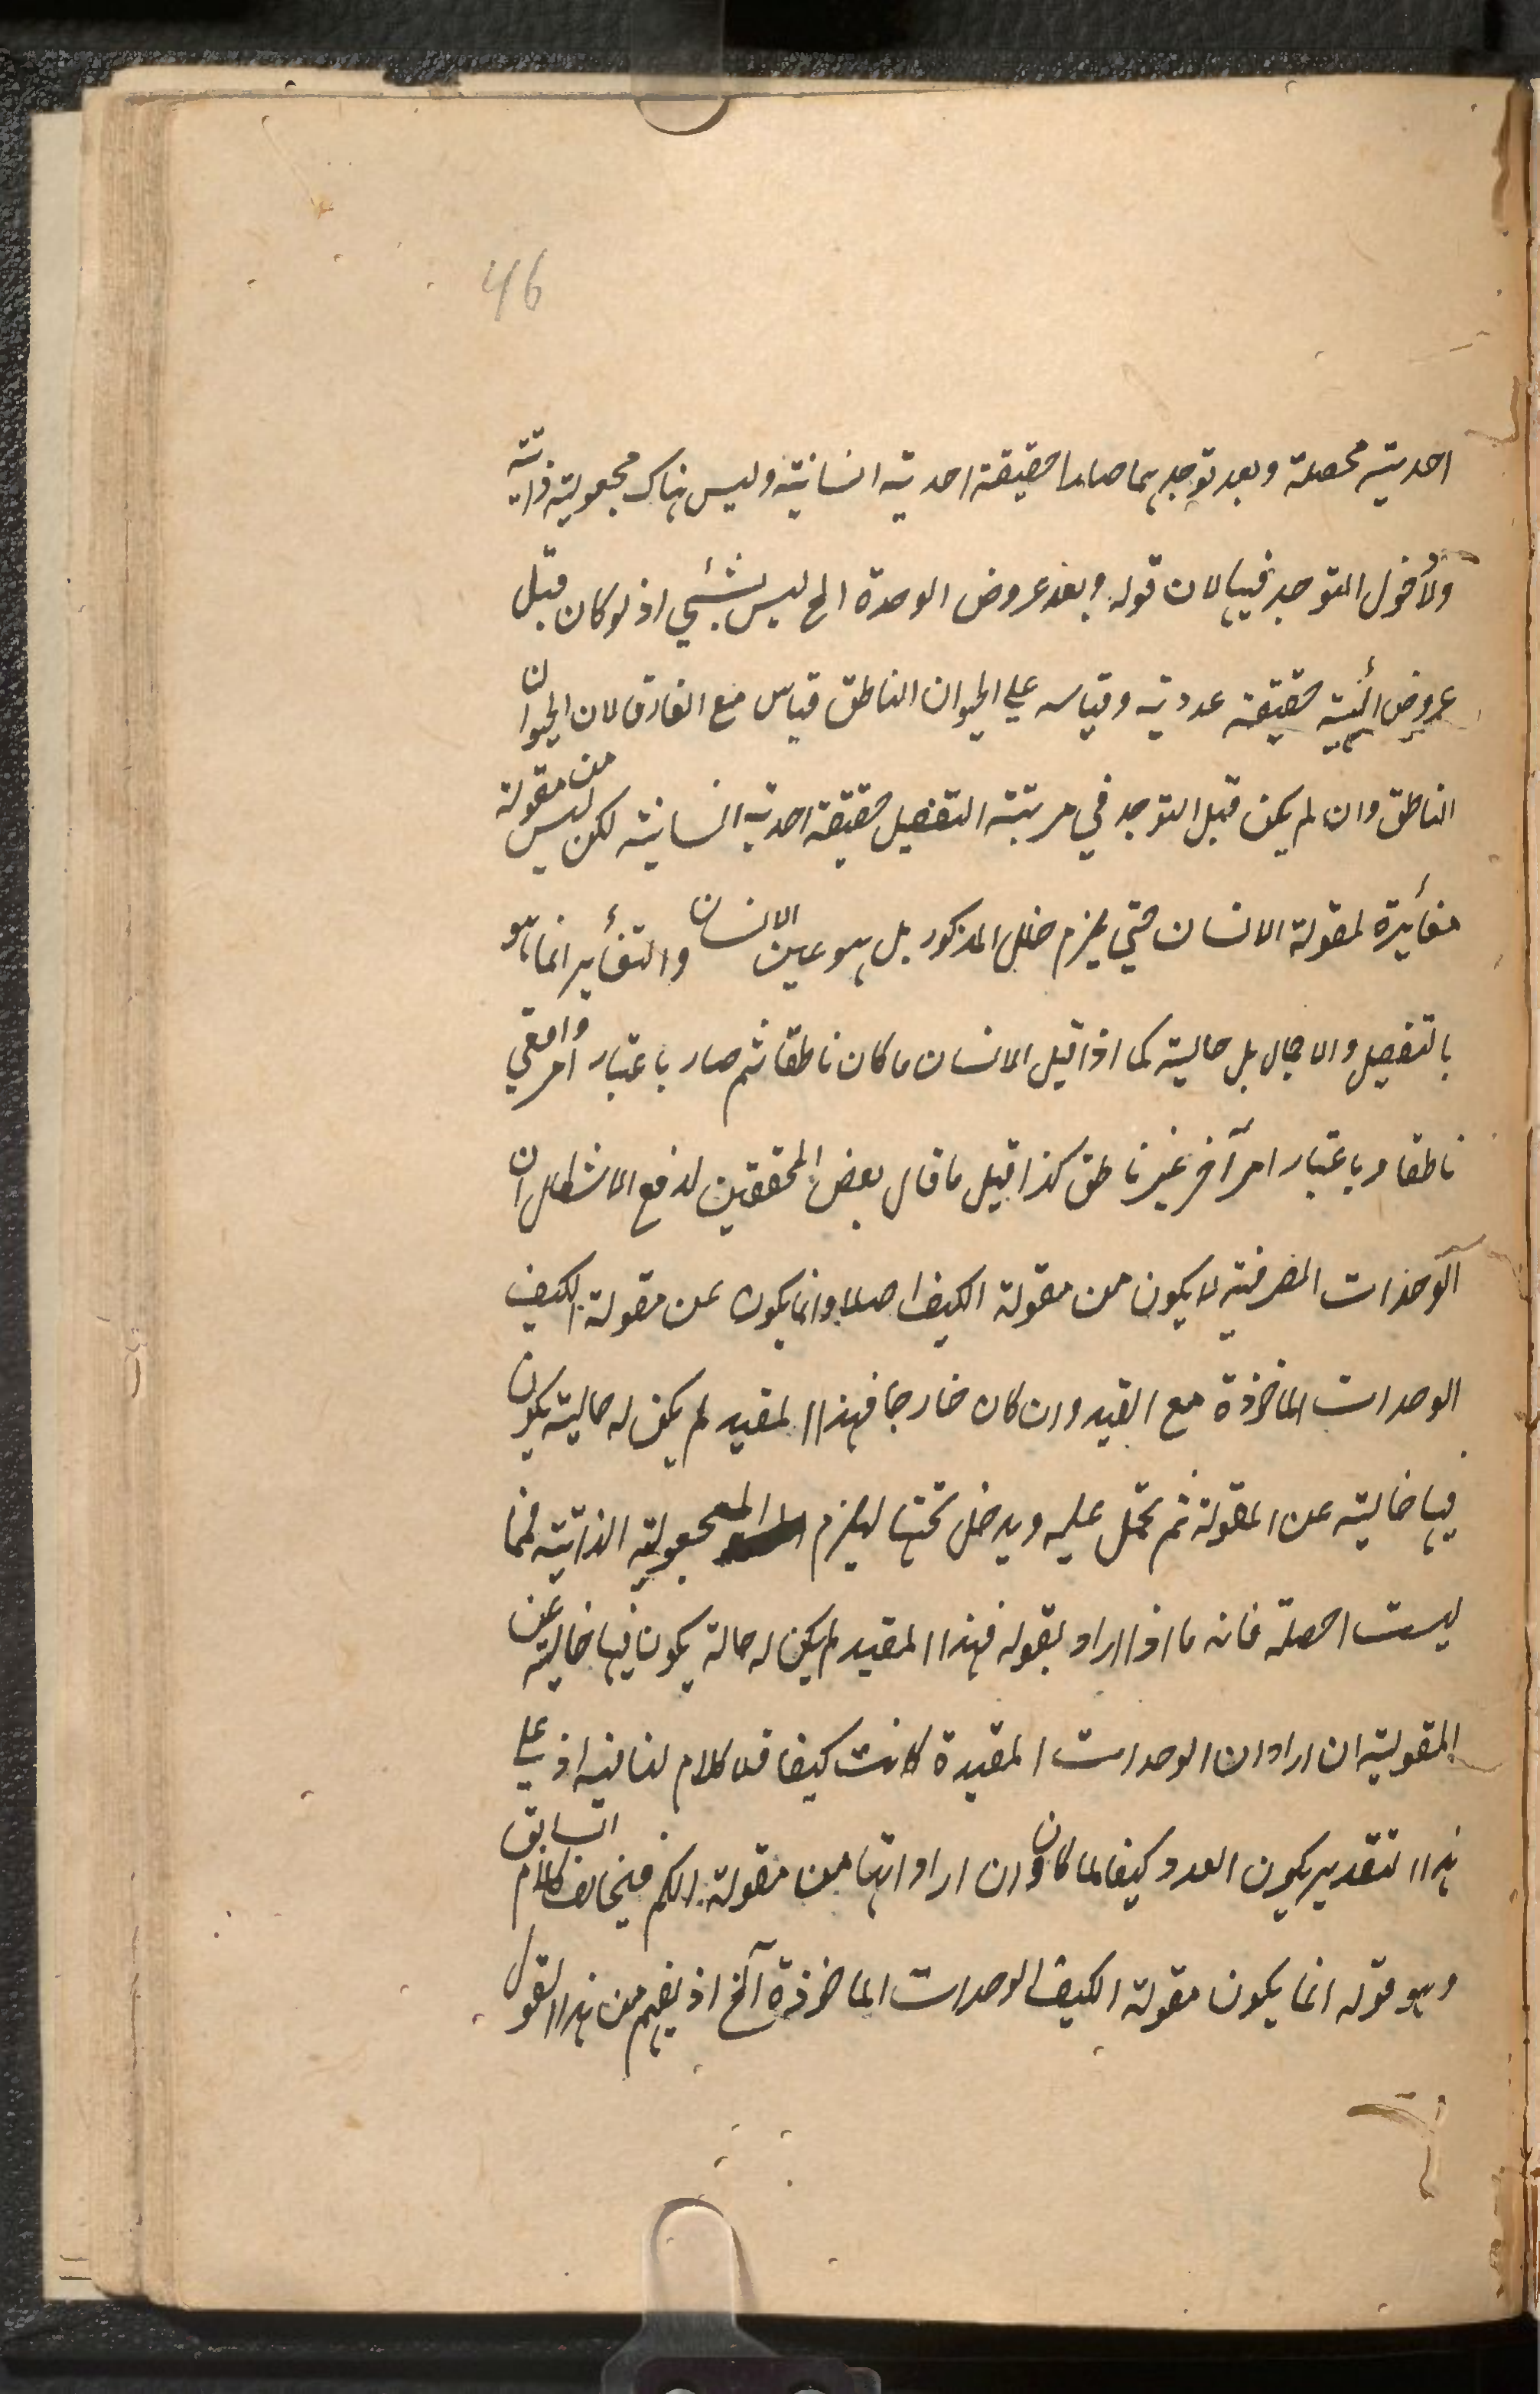 46
احدیته محصلة وبعد توحدهما صارا حقیقة احدیة انسانیة ولیس هناک مجعولیة ذاتیة
ولا دخل التوحد فیها لان قوله وبعد عروض الوحدة الخ لیس بشئی اذ لو کان قبل
عروض حقیقة عددیة وقیاسه علی الحیوان الناطق قیاس مع الفارق لان الحیوان
الناطق وان لم یکن قبل التوحد فی مرتبة التفصیل حقیقة احدیة انسانیة لکن لیس من مقولة
مغائرة لمقولة الانسان حتی یلزم خلل المذکور بل هو عین الانسان والتغائر انما هو
بالتفصیل والاجمال بل حالیة کما اذا قیل الانسان ما کان ناطقا ثم صار باعتبار امر واقعی
ناطقا وباعتبار امر آخر غیر ناطق کذا قیل ما قال بعض المحققین لدفع الاشکال ان
الوحدات الصرفیة لا یکون من مقولة الکیف اصلا وانما یکون من مقولة الکیف
الوحدات الماخوذة مع القید وان کان خارجا فهذا المقید لم یکن له حالیة یکون
فیها خالیة عن المقولة ثم تحمل علیه ویدخل تحتها لیلزم المجعولیة الذاتیة فمما
لیست احصله فانه ماذا اراد بقوله فهذا المقید لم یکن له حالة یکون فیها خالیة عن
المقولیة ان اراد ان الوحدات المقیدة کانت کیفا فلا کلام لنا فیه اذ علی
هذا التقدیر یکون العدد کیفا لما کان وان اراد انها من مقولة الکم فیخالف کلام السابق
وهو قوله انما یکون مقولة الکیف الوحدات الماخوذة آلخ اذ یفهم من هذا القول